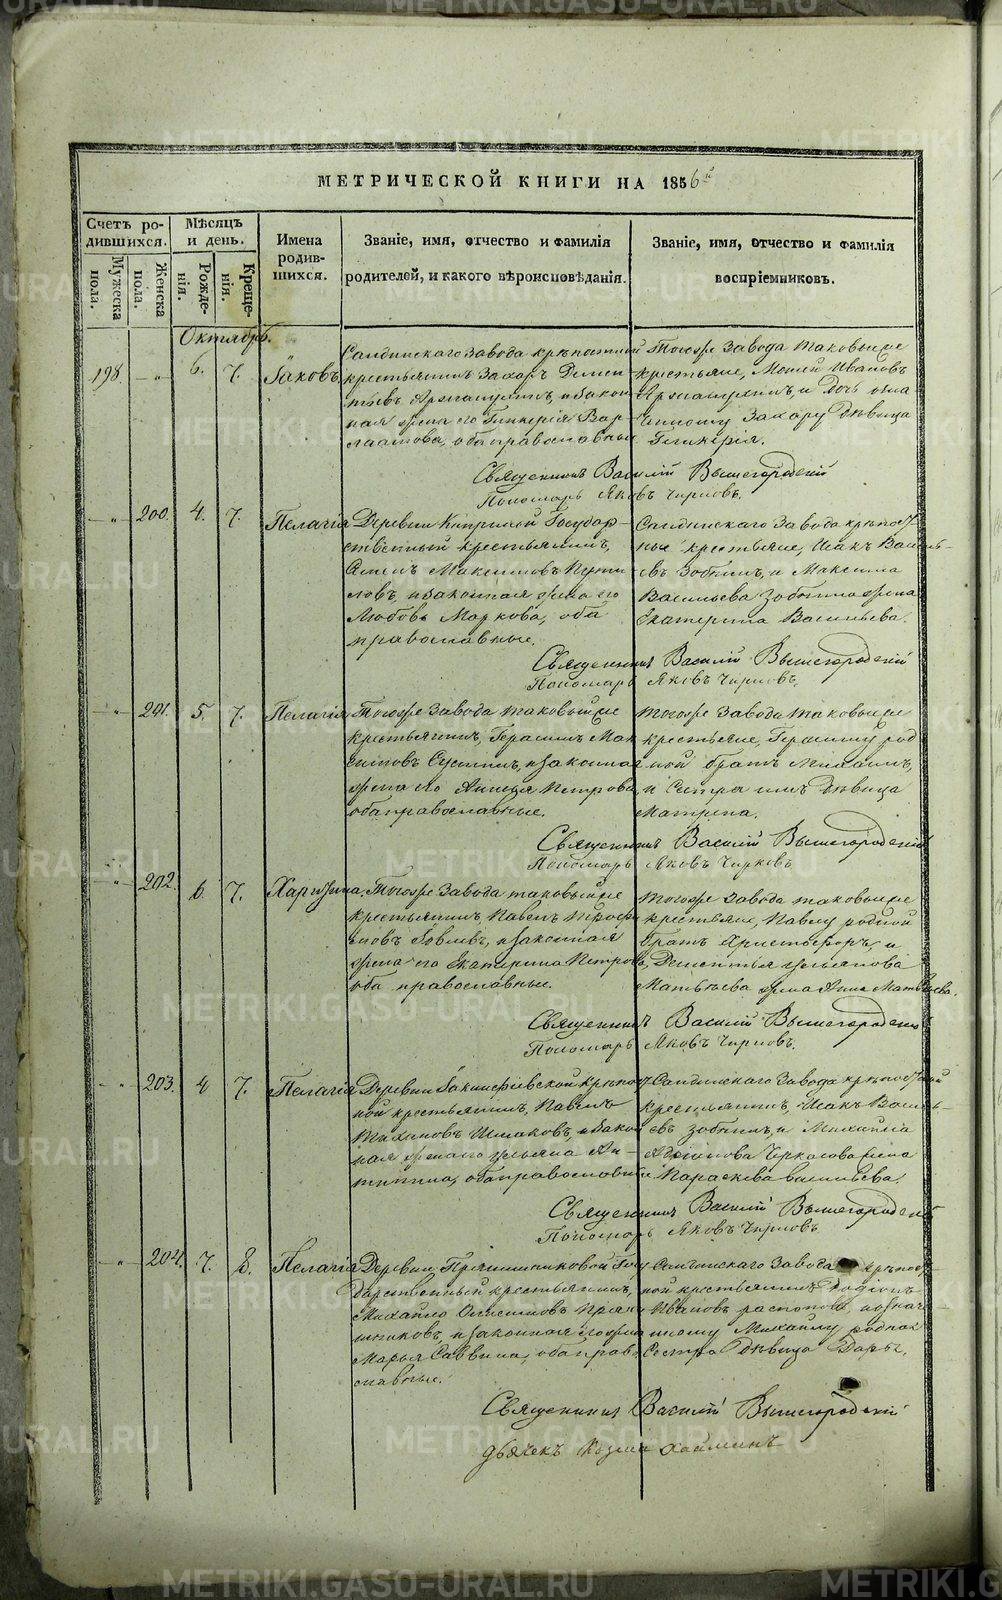 МЕТРИЧЕСКОЙ КНИГИ НА 1856й
Счетъ ро-
дившихся.
Мужеска
пола.
Женска
пола.
Мѣсяцъ
и день.
Рожде-
нія.
Креще-
нія.
Имена
родив-
шихся.
Званіе, имя, отчество и фамилія
родителей, и какого вѣроисповѣданія.
Званіе, имя, отчество и фамилія
воспріемниковъ.
Октябрь.
198. — „ — 6. 7. Іаковъ.
Салдинскаго завода крѣпостный
крестьянинъ Захаръ Демен-
тьевъ и закон-
ная жена его Гликерія Вар-
лаамова, оба православные
Тогоже завода таковыеже
крестьяне, Иванов
и дочь озна
ченному Захару дѣвица
Гликерія.
Священникъ Василій Вышегородскій
Пономарь Яковъ Чирковъ.
— „ — 200. 4. 7. Пелагія
Деревни Государ-
ственный крестьянинъ,
Максимовъ
и законная жена его
Любовь Маркова, оба
православные.
Салдинскаго завода крѣпост
ные крестьяне, Исакъ Василь-
евъ Зобнинъ, и Максима
Васильева Зобнина жена
Екатерина Васильева.
Священникъ Василій Вышегородскій
Пономарь Яковъ Чирковъ.
— „ — 201. 5. 7. Пелагія
Тогоже завода таковыйже
крестьянинъ, Герасимъ Мак
симовъ и законная
жена его Петрова,
оба православные.
Тогоже завода таковыеже
крестьяне, Герасиму род
ной братъ Михаилъ,
и сестра имъ дѣвица
Матрена.
Священникъ Василій Вышегородскій
Пономарь Яковъ Чирковъ
— „ — 202. 6. 7. Харитина.
Тогоже завода таковыйже
крестьянинъ Павелъ Трофи
мовъ и законная
жена его Екатерина Петрова,
оба православные.
Тогоже завода таковыеже
крестьяне, Павлу родной
братъ Христофоръ, и
Дементья Ульянова
Матвѣева жена Анна Матвѣева.
Священникъ Василій Вышегородскій
Пономарь Яковъ Чирковъ.
— „ — 203. 4 7. Пелагія
Деревни крѣпост
ной крестьянинъ, Павелъ
Тихановъ и закон
ная жена его Ульяна Ан-
типина, оба православные
Салдинскаго завода крѣпостной
крестьянинъ, Исакъ Василь-
евъ Зобнинъ, и Михаила
Черкасова жена
Параскева Васильева.
Священникъ Василій Вышегородскій
Пономарь Яковъ Чирковъ
— „ — 204. 7. 8. Пелагія
Деревни Прянишниковой Госу
дарственный крестьянинъ,
Михайло Онисимовъ Пряни
шниковъ, и законная его жена
Марья Саввина, оба право
славные.
Салдинскаго завода крѣпост
ной крестьянинъ Родіонъ
Ивановъ и означ
енному Михайлу родная
сестра дѣвица Дарья.
Священникъ Василій Вышегородскій
Дьячекъ Козма
METRIKI.GASO-URAL.RU